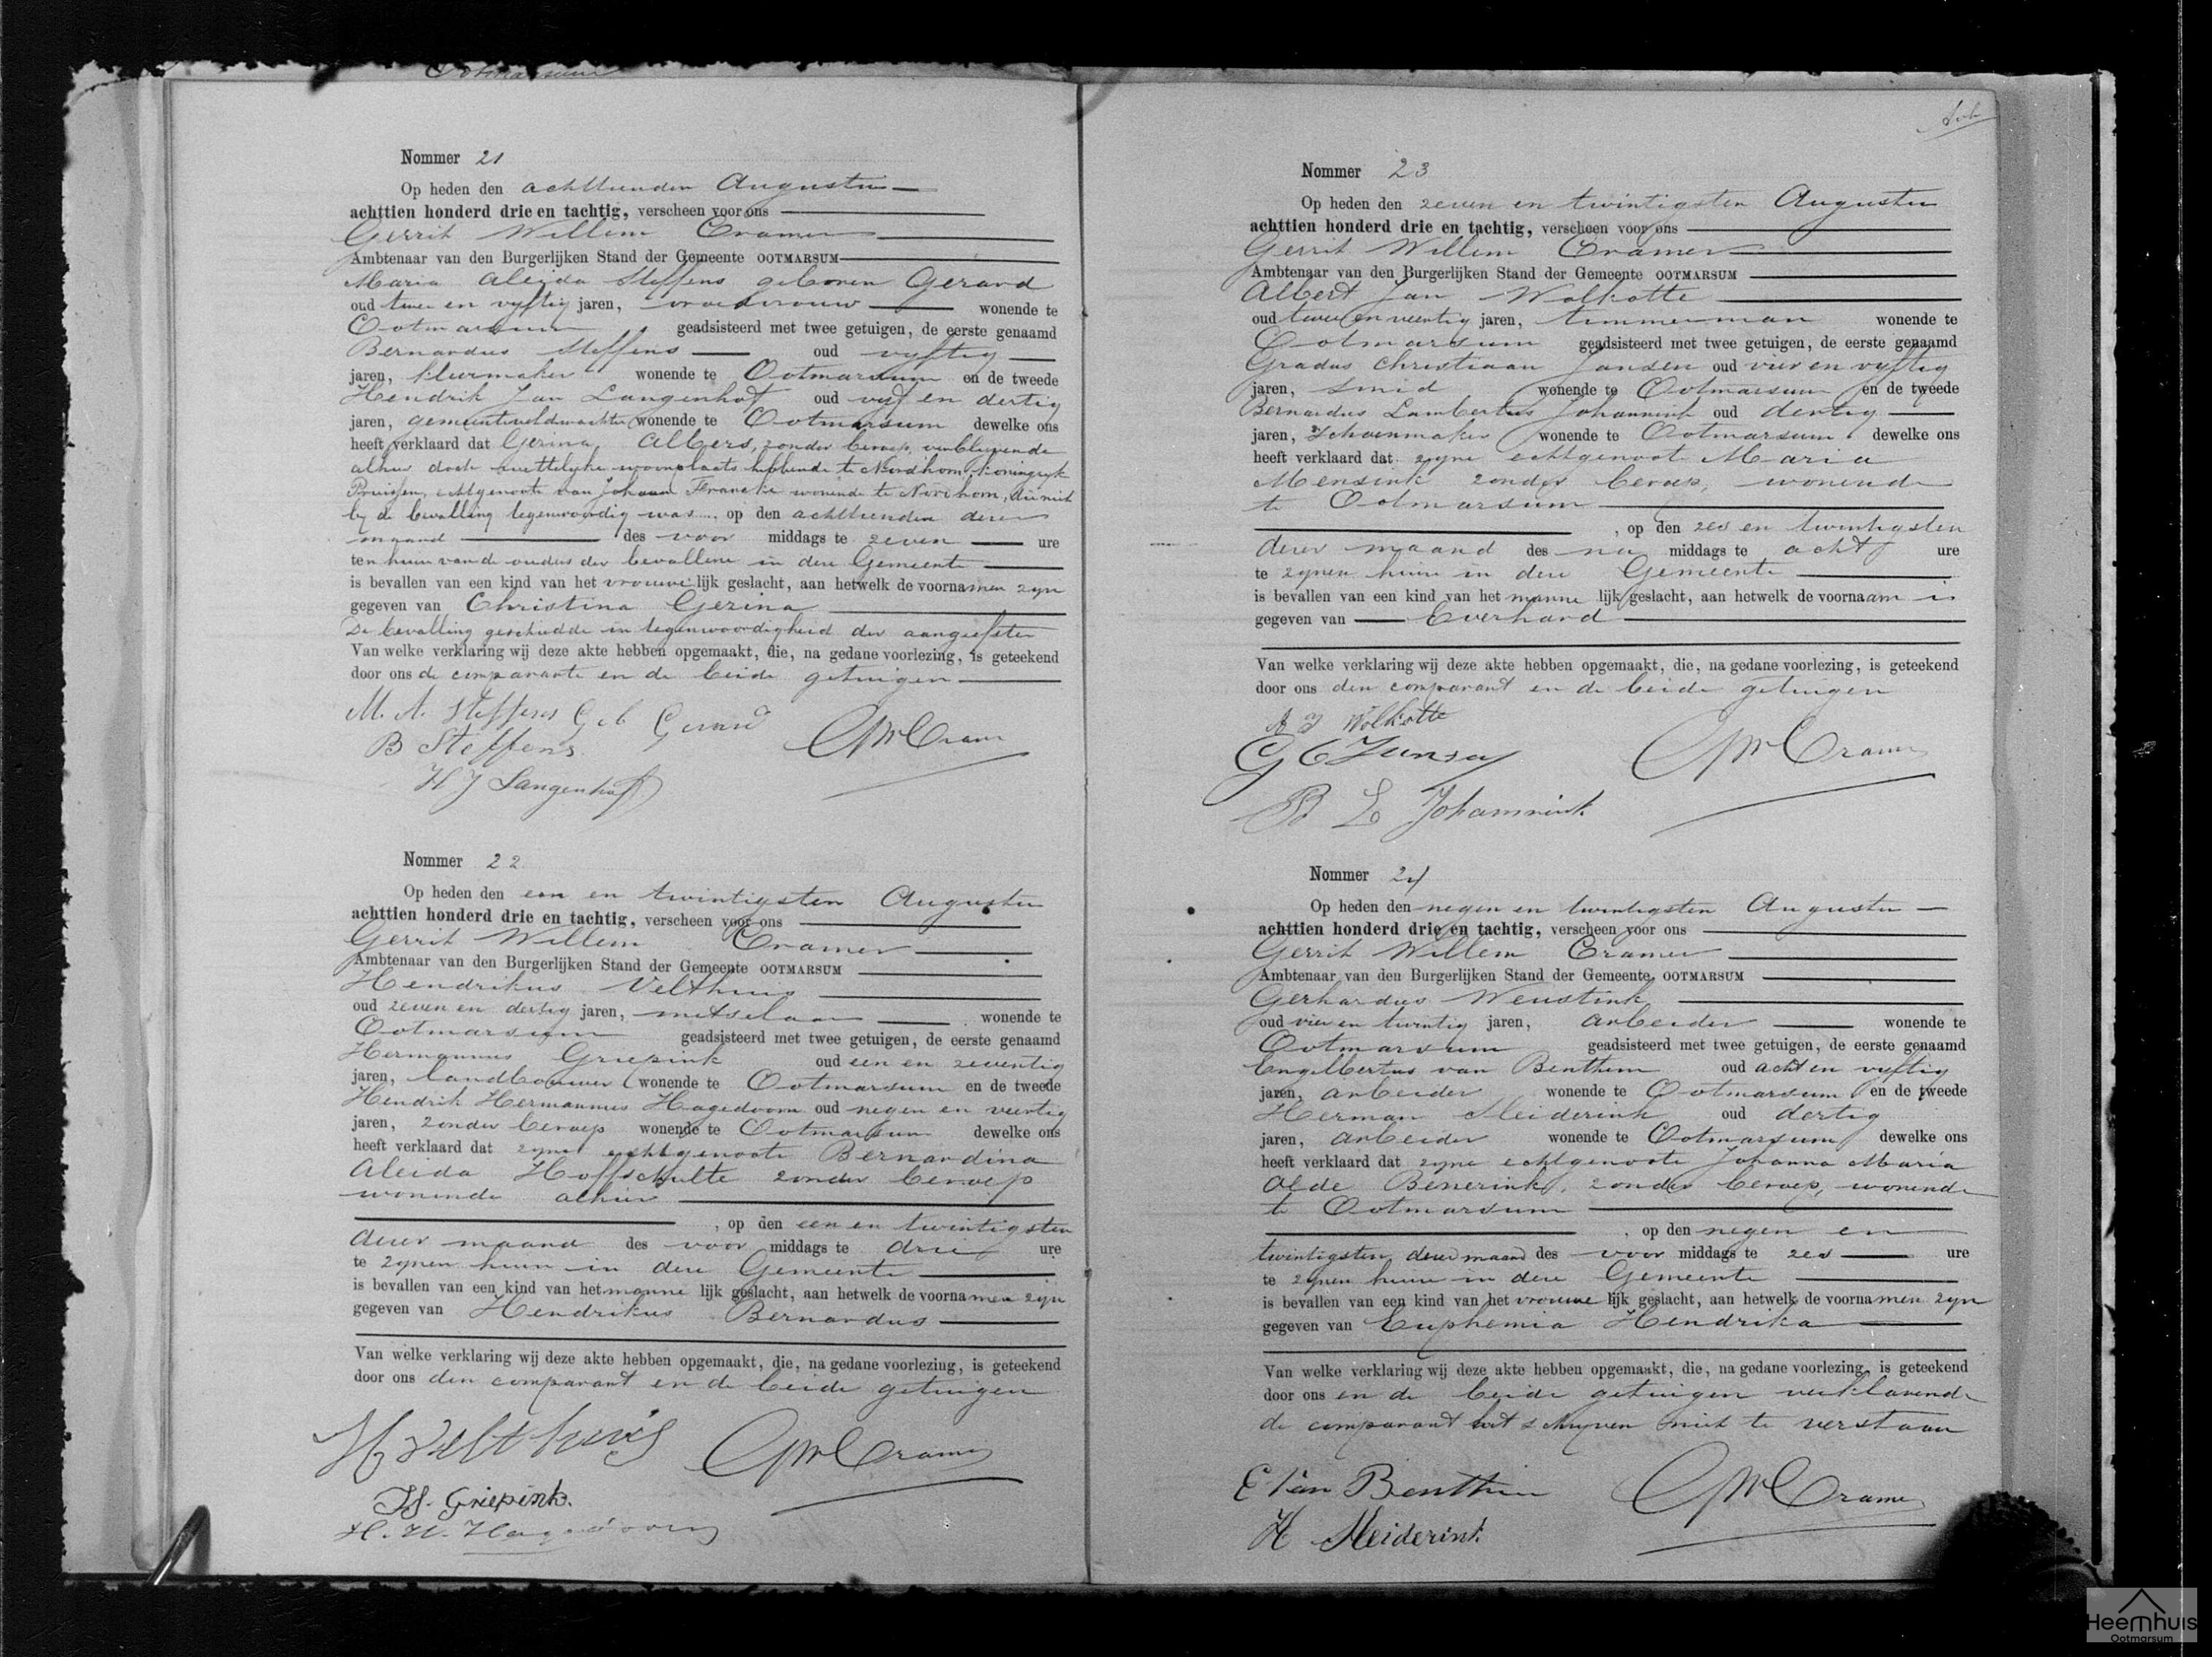 Ootmarsum
Nommer 21
Op heden den achttienden Augustus
achttien honderd drie en tachtig, verscheen voor ons
Gerrit Willem Cramer
Ambtenaar van den Burgerlijken Stand der Gemeente OOTMARSUM
Maria Aleida Steffens geboren Gerard
oud twee en vyftig jaren, vroedvrouw wonende te
Ootmarsum geadsisteerd met twee getuigen, de eerste genaamd
Bernardus Steffens oud vyftig
jaren, kleermaker wonende te Ootmarsum en de tweede
Hendrik Jan Langenhof oud vyf en dertig
jaren, gemeenteveldwachter wonende te Ootmarsum dewelke ons
heeft verklaard dat Gerina Albers, zonder beroep, verblyvende
alhier doch wettelyke woonplaats hebbende te Nordhorn, koningryk
Pruissen, echtgenoote van Johann Francke wonende te Nordhorn, die niet
by de bevalling tegenwoordig was, op den achttienden dezer
maand des voor middags te zeven ure
ten huize van de ouders der bevallene in deze Gemeente
is bevallen van een kind van het vrouwelijk geslacht, aan hetwelk de voornamen zyn
gegeven van Christina Gerina
De bevalling geschiedde in tegenwoordigheid der aangeefster
Van welke verklaring wij deze akte hebben opgemaakt, die, na gedane voorlezing, is geteekend
door ons de comparante en de beide getuigen
M. A. Steffens Geb Gerard
B Steffens
GWCramer
H J Langenhof
Nommer 22
Op heden den een en twintigsten Augustus
achttien honderd drie en tachtig, verscheen voor ons
Gerrit Willem Cramer
Ambtenaar van den Burgerlijken Stand der Gemeente OOTMARSUM
Hendrikus Velthuis
oud zeven en dertig jaren, metselaar wonende te
Ootmarsum geadsisteerd met twee getuigen, de eerste genaamd
Hermannus Griepink oud een en zeventig
jaren, landbouwer wonende te Ootmarsum en de tweede
Hendrik Hermannus Hagedoorn oud negen en veertig
jaren, zonder beroep wonende te Ootmarsum dewelke ons
heeft verklaard dat zyne echtgenoote Bernardina
Aleida Hoffschulte zonder beroep
wonende alhier
, op den een en twintigsten
dezer maand des voor middags te drie ure
te zynen huize in deze Gemeente
is bevallen van een kind van het mannelijk geslacht, aan hetwelk de voornamen zyn
gegeven van Hendrikus Bernardus
Van welke verklaring wij deze akte hebben opgemaakt, die, na gedane voorlezing, is geteekend
door ons den comparant en de beide getuigen
H Velthuis GWCramer
H. Griepink.
H. H. Hagedoorn
Nommer 23
Op heden den zeven en twintigsten Augustus
achttien honderd drie en tachtig, verscheen voor ons
Gerrit Willem Cramer
Ambtenaar van den Burgerlijken Stand der Gemeente OOTMARSUM
Albert Jan Wolkotte
oud twee en veertig jaren, timmerman wonende te
Ootmarsum geadsisteerd met twee getuigen, de eerste genaamd
Gradus Christiaan Jansen oud vier en vyftig
jaren, smid wonende te Ootmarsum en de tweede
Bernardus Lambertus Johannink oud dertig
jaren, schoenmaker wonende te Ootmarsum dewelke ons
heeft verklaard dat zyne echtgenoot Maria
Mensink zonder beroep, wonende
te Ootmarsum
, op den zes en twintigsten
dezer maand des na middags te acht ure
te zynen huize in deze Gemeente
is bevallen van een kind van het mannelijk geslacht, aan hetwelk de voornaam is
gegeven van Everhard
Van welke verklaring wij deze akte hebben opgemaakt, die, na gedane voorlezing, is geteekend
door ons den comparant en de beide getuigen
A J Wolkotte
G C Jansen GWCramer
B L Johannink
Nommer 24
Op heden den negen en twintigsten Augustus
achttien honderd drie en tachtig, verscheen voor ons
Gerrit Willem Cramer
Ambtenaar van den Burgerlijken Stand der Gemeente OOTMARSUM
Gerhardus Weustink
oud vier en twintig jaren, arbeider wonende te
Ootmarsum geadsisteerd met twee getuigen, de eerste genaamd
Engelbertus van Benthem oud acht en vyftig
jaren, arbeider wonende te Ootmarsum en de tweede
Herman Meiderink oud dertig
jaren, arbeider wonende te Ootmarsum dewelke ons
heeft verklaard dat zyne echtgenoote Johanna Maria
Olde Benerink, zonder beroep, wonende
te Ootmarsum
, op den negen en
twintigsten dezer maand des voor middags te zes ure
te zynen huize in deze Gemeente
is bevallen van een kind van het vrouwelijk geslacht, aan hetwelk de voornamen zyn
gegeven van Euphemia Hendrika
Van welke verklaring wij deze akte hebben opgemaakt, die, na gedane voorlezing, is geteekend
door ons en de beide getuigen verklarende
de comparant het schryven niet te verstaan
E Van Benthem GWCramer
H Meiderink.
Heemhuis
Ootmarsum